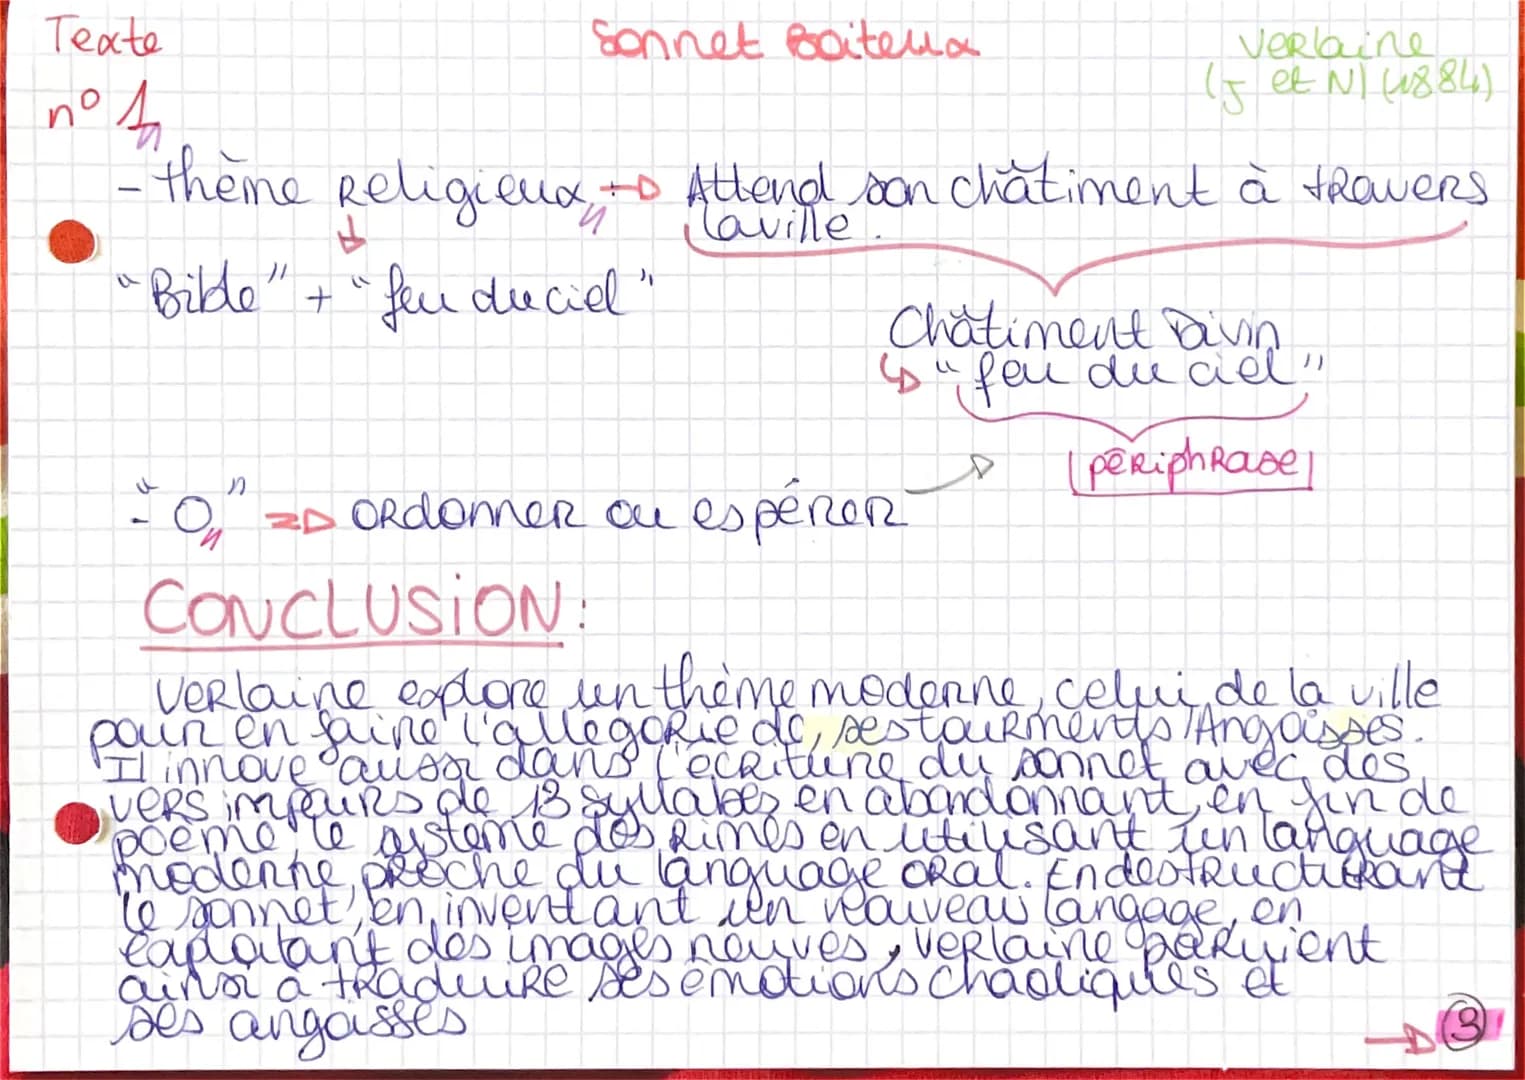 Texte
n° 1
Sonnet Boiteux
Verlaine
(J et N) (1884)
- thème Religieux → Attend son châtiment à travers
la ville.
"Bible" + "feu du ciel"
Châtiment Divin
↳ "feu du ciel"
périphrase
- "O" => ordonner ou espérer
CONCLUSION:
Verlaine explore un thème moderne, celui de la ville
pour en faire l'allégorie de ses tourments/Angoisses.
Il innove aussi dans l'écriture du sonnet avec des
vers impairs de 13 syllabes en abandonnant, en fin de
poème, le système des rimes en utilisant un language
moderne, proche du language oral. En destructurant
le sonnet, en inventant un nouveau langage, en
exploitant des images neuves, Verlaine parvient
ainsi à traduire ses émotions chaotiques et
ses angoisses
→ 3